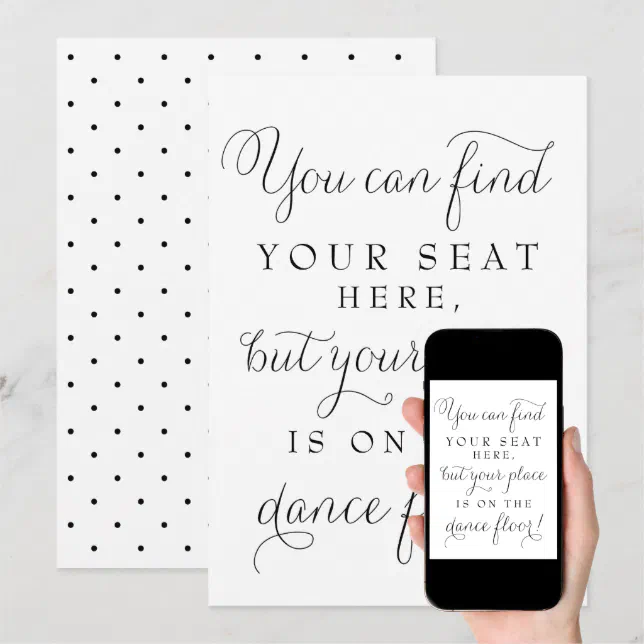 You can find
YOUR SEAT
HERE,
but your
IS ON
dance
You can find
YOUR SEAT
HERE,
but your place
IS ON THE
dance floor!